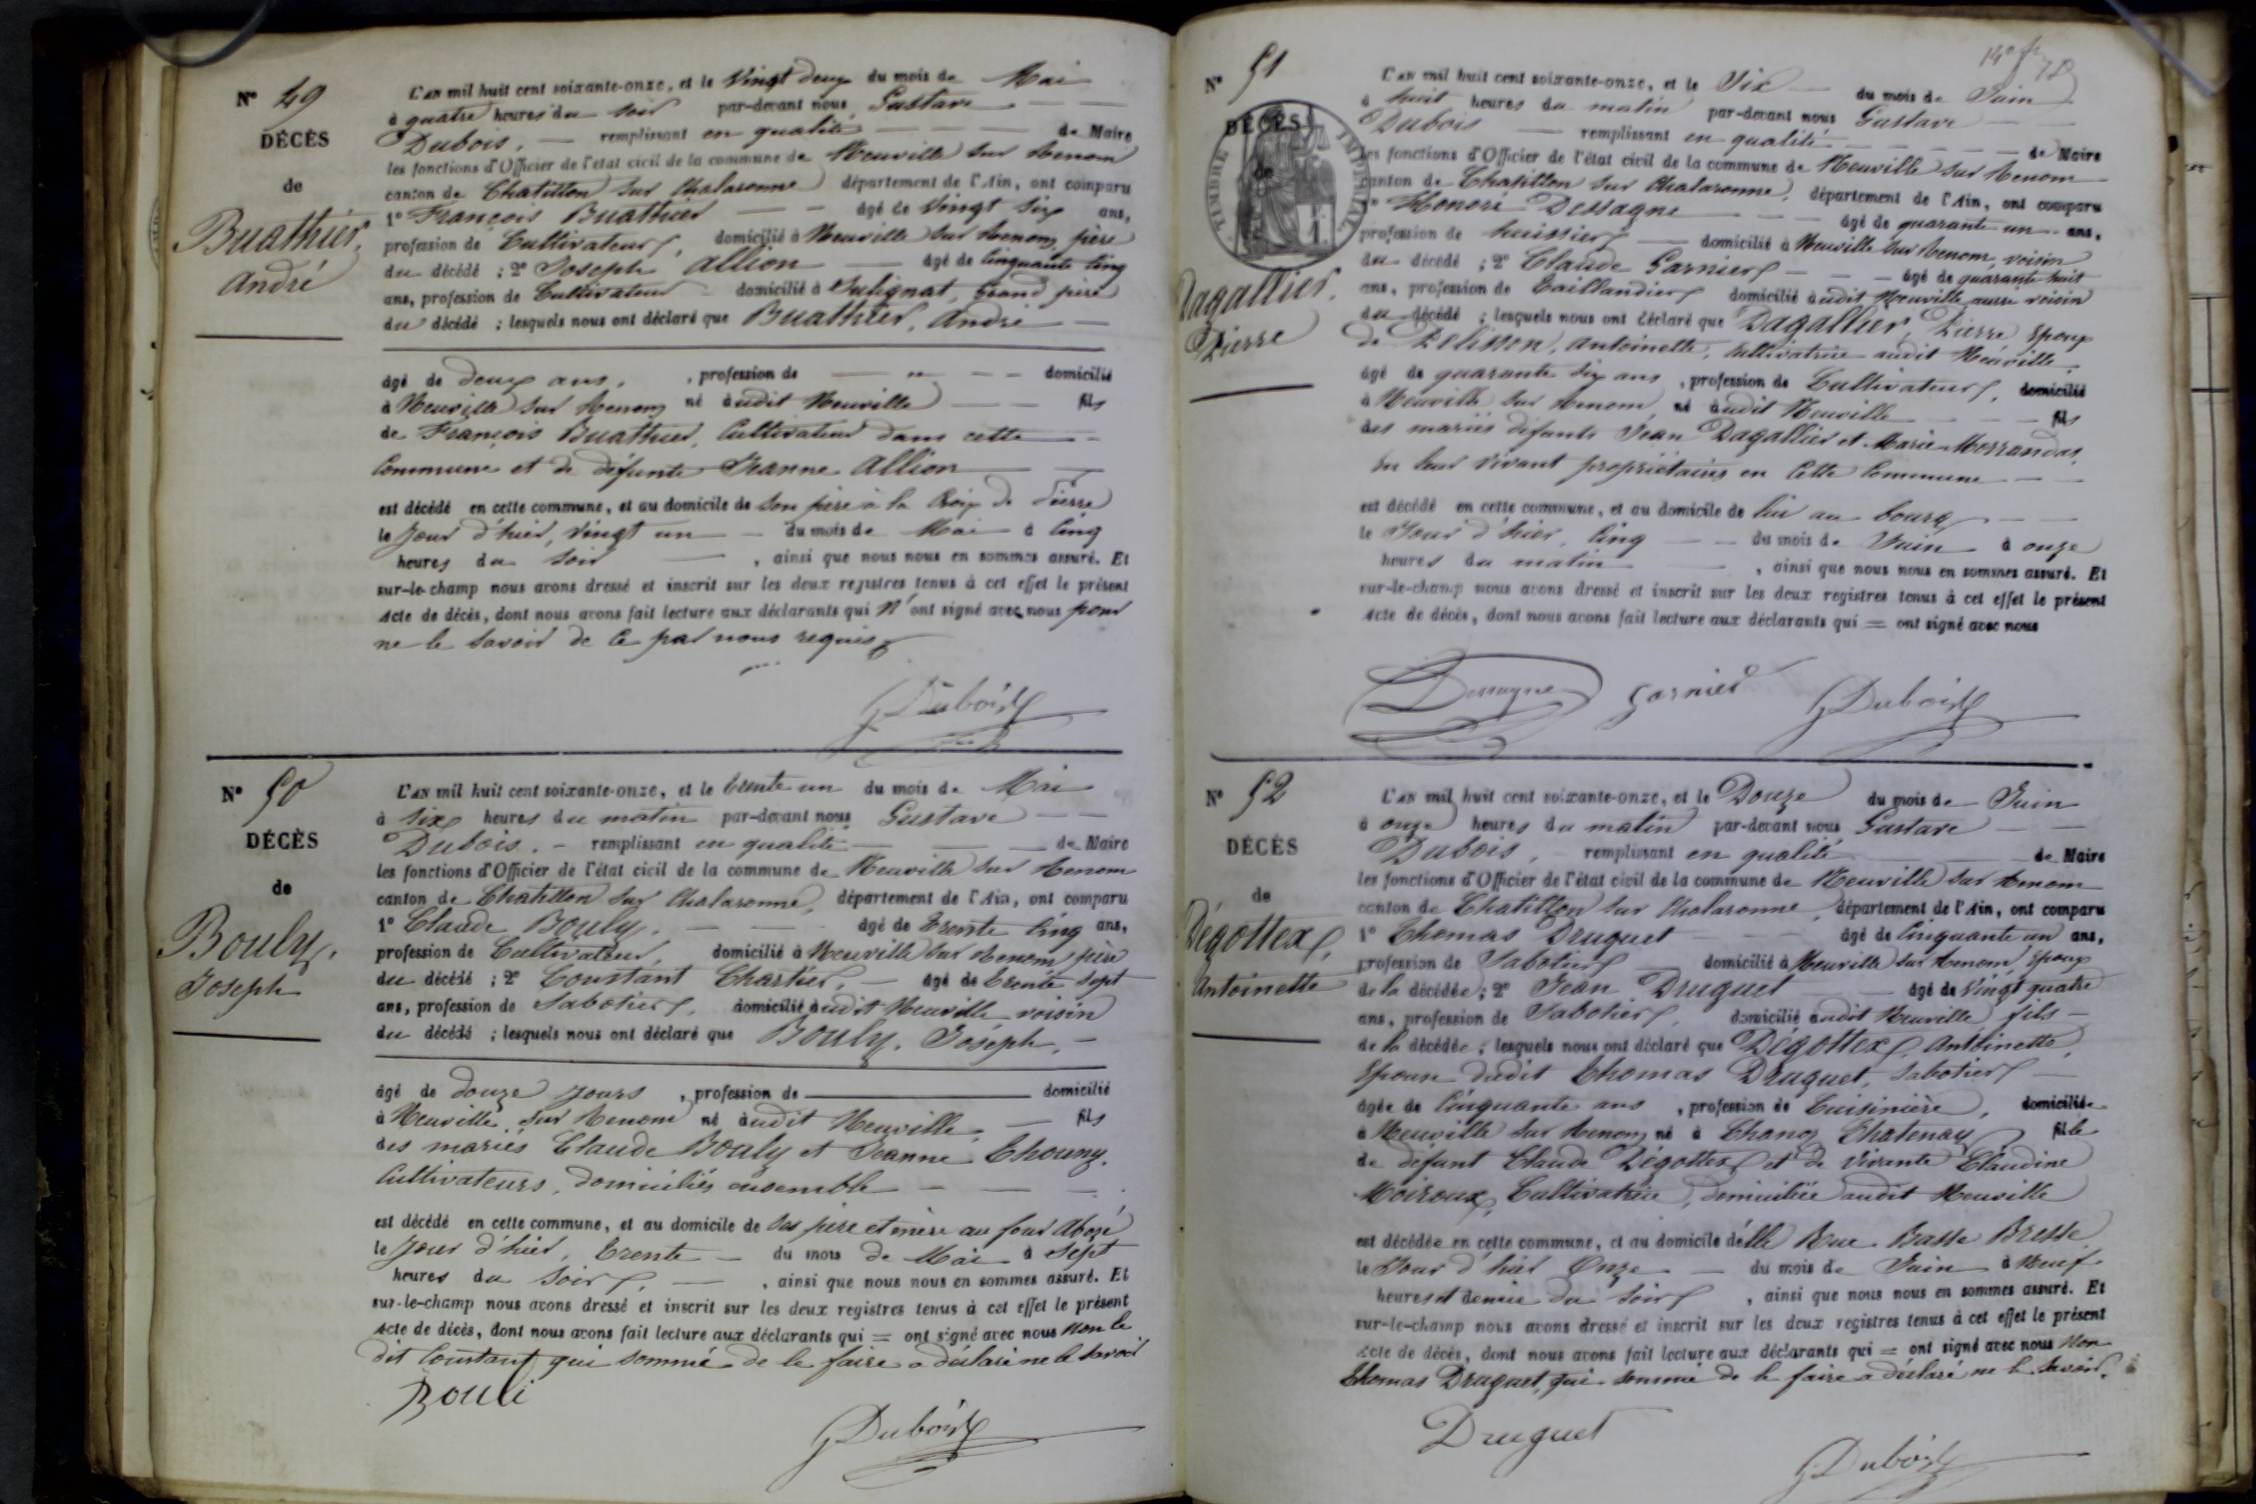 N° 49
DÉCÈS
de
Buathier,
André
L'AN mil huit cent soixante-onze, et le Vingt deux du mois de Mai
à quatre heures du soir par-devant nous Gustave
Dubois, remplissant en qualité de Maire
les fonctions d'Officier de l'état civil de la commune de Neuville sur Renom
canton de Chatillon sur Chalaronne, département de l'Ain, ont comparu
1° François Buathier âgé de Vingt six ans,
profession de Cultivateur, domicilié à Neuville sur Renom, père
du décédé ; 2° Joseph Allion âgé de Cinquante cinq
ans, profession de Cultivateur domicilié à Sulignat, Grand père
du décédé ; lesquels nous ont déclaré que Buathier, André
âgé de deux ans, , profession de " domicilié
à Neuville sur Renom né audit Neuville fils
de François Buathier, Cultivateur dans cette
Commune et de défunte Jeanne Allion
est décédé en cette commune, et au domicile de son père à la Croix de Pierre
le Jour d'hier, Vingt un du mois de Mai à Cinq
heures du soir , ainsi que nous nous en sommes assuré. Et
sur-le-champ nous avons dressé et inscrit sur les deux registres tenus à cet effet le présent
acte de décès, dont nous avons fait lecture aux déclarants qui n'ont signé avec nous pour
ne le savoir de ce par nous requis
GDubois
N° 50
DÉCÈS
de
Bouly,
Joseph
L'AN mil huit cent soixante-onze, et le trente un du mois de Mai
à Six heures du matin par-devant nous Gustave
Dubois. remplissant en qualité de Maire
les fonctions d'Officier de l'état civil de la commune de Neuville sur Renom
canton de Chatillon sur Chalaronne, département de l'Ain, ont comparu
1° Claude Bouly. âgé de Trente Cinq ans,
profession de Cultivateur, domicilié à Neuville sur Renom père
du décédé ; 2° Constant Chartier, âgé de trente sept
ans, profession de Sabotier, domicilié audit Neuville voisin
du décédé ; lesquels nous ont déclaré que Bouly, Joseph,
âgé de douze jours , profession de domicilié
à Neuville sur Renom né audit Neuville, fils
des mariés Claude Bouly et Jeanne
Cultivateurs, domiciliés ensemble
est décédé en cette commune, et au domicile de ses père et mère au four
le Jour d'hier, Trente du mois de Mai à Sept
heures du Soir, , ainsi que nous nous en sommes assuré. Et
sur-le-champ nous avons dressé et inscrit sur les deux registres tenus à cet effet le présent
acte de décès, dont nous avons fait lecture aux déclarants qui = ont signé avec nous Non le
dit Constant, qui sommé de le faire a déclaré ne le savoir
Bouli
GDubois
N° 51
DÉCÈS
de
TIMBRE IMPÉRIAL
Dagallier,
Pierre
L'AN mil huit cent soixante-onze, et le Six du mois de Juin
à huit heures du matin par-devant nous Gustave
Dubois remplissant en qualité de Maire
les fonctions d'Officier de l'état civil de la commune de Neuville sur Renom
canton de Chatillon sur Chalaronne, département de l'Ain, ont comparu
1° Honoré Dessagne âgé de quarante un ans,
profession de huissier domicilié à Neuville sur Renom, voisin
du décédé ; 2° Claude Garnier âgé de quarante huit
ans, profession de Taillandier domicilié audit Neuville, aussi voisin
du décédé ; lesquels nous ont déclaré que Dagallier, Pierre, Epoux
de Pelisson, Antoinette, Cultivatrice audit Neuville,
âgé de quarante six ans , profession de Cultivateur, domicilié
à Neuville sur Renom, né audit Neuville fils
des mariés défunts Jean Dagallier et Marie Morrandas,
en leur vivant propriétaires en Cette Commune
est décédé en cette commune, et au domicile de lui au bourg
le Jour d'hier, Cinq du mois de Juin à onze
heures du matin , ainsi que nous nous en sommes assuré. Et
sur-le-champ nous avons dressé et inscrit sur les deux registres tenus à cet effet le présent
acte de décès, dont nous avons fait lecture aux déclarants qui = ont signé avec nous
Dessagne Garnier GDubois
N° 52
DÉCÈS
de
Dégottex,
Antoinette
L'AN mil huit cent soixante-onze, et le Douze du mois de Juin
à onze heures du matin par-devant nous Gustave
Dubois, remplissant en qualité de Maire
les fonctions d'Officier de l'état civil de la commune de Neuville sur Renom
canton de Chatillon sur Chalaronne, département de l'Ain, ont comparu
1° Thomas Druguet âgé de Cinquante un ans,
profession de Sabotier domicilié à Neuville sur Renom, Epoux
de la décédée ; 2° Jean Druguet âgé de Vingt quatre
ans, profession de Sabotier, domicilié audit Neuville, fils
de la décédée ; lesquels nous ont déclaré que Dégottex, Antoinette,
Epouse dudit Thomas Druguet, Sabotier
âgée de Cinquante ans , profession de Cuisinière, domiciliée
à Neuville sur Renom, né à Chanoz Chatenay, fille
de défunt Claude Dégottex et de vivante Claudine
Moiroux, Cultivatrice, domiciliée audit Neuville
est décédée en cette commune, et au domicile d'elle Rue Basse Bresse
le Jour d'hier Onze du mois de Juin à Neuf
heures et demie du soir , ainsi que nous nous en sommes assuré. Et
sur-le-champ nous avons dressé et inscrit sur les deux registres tenus à cet effet le présent
acte de décès, dont nous avons fait lecture aux déclarants qui = ont signé avec nous Non
Thomas Druguet, qui sommé de le faire a déclaré ne le savoir.
Druguet
GDubois